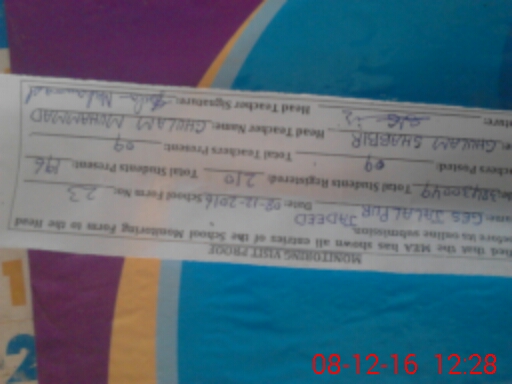 MONITORING VISIT PROOF
fied that the MEA has shown all entries of the School Monitoring Form to the Head
before its online submission.
me: GES JALALPUR JADEED Date: 08-12-2016 School Form No: 23
de: 38430049 Total Students Registered: 210 Total Students Present: 196
chers Posted: 09 Total Teachers Present: 09
e: GHULAM SHABBIR Head Teacher Name: GHULAM MUHAMMAD
ture: Head Teacher Signature:
1
2
08-12-16 12:28